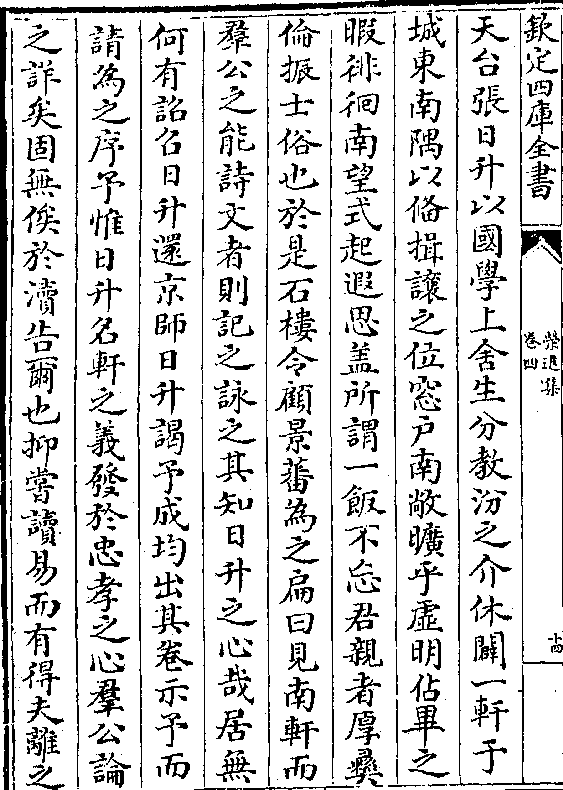 欽定四庫全書
榮進集
卷四
十四
天台張日升以國學上舍生分教汾之介休闢一軒于
城東南隅以備揖讓之位窓戶南敞曠乎虛明佔畢之
暇徘徊南望式起遐思盖所謂一飯不忘君親者厚彞
倫振士俗也於是石樓令顧景蕃為之扁曰見南軒而
羣公之能詩文者則記之詠之其知日升之心哉居無
何有詔召日升還京師日升謁予成均出其卷示予而
請為之序予惟日升名軒之義發於忠孝之心羣公論
之詳矣固無俟於瀆告爾也抑嘗讀易而有得夫離之